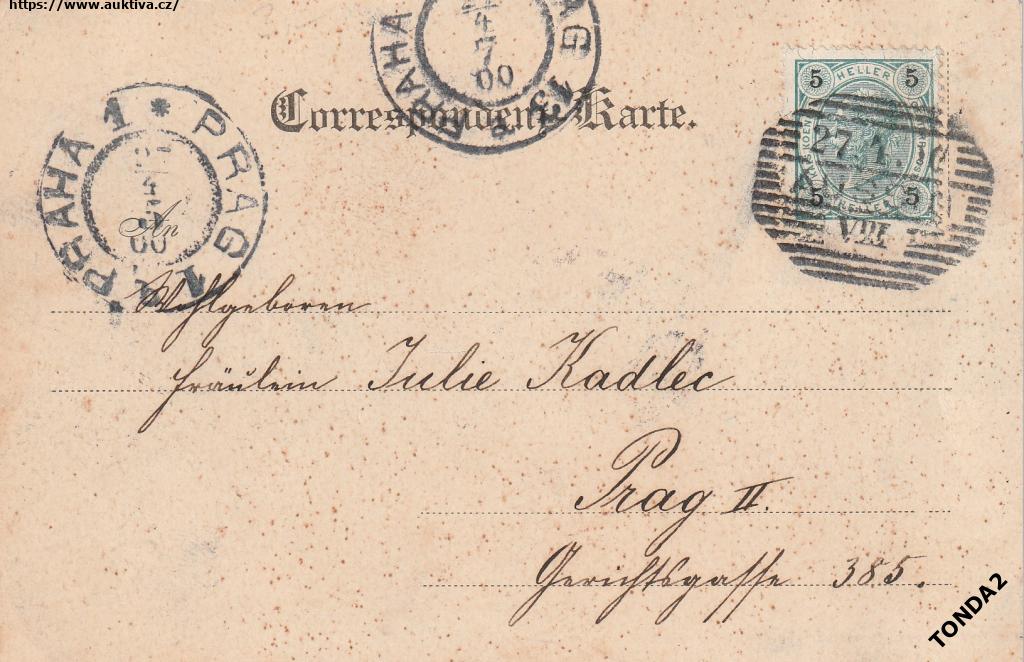 https://www.auktiva.cz/
Correspondenz-Karte.
5 HELLER 5
27 1.
5 5
VIII
PRAHA 1 * PRAG 1
4
00
PRAHA PRAG 1
4
7
00
An
Wohlgeboren
Fräulein Julie Kadlec
Prag II.
Gerichtsgasse 385.
TONDA2